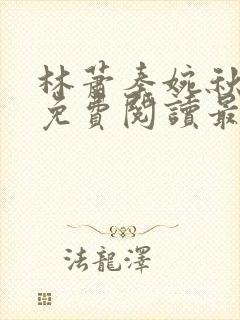 林蕭秦婉秋
免費閱讀最
法龍澤